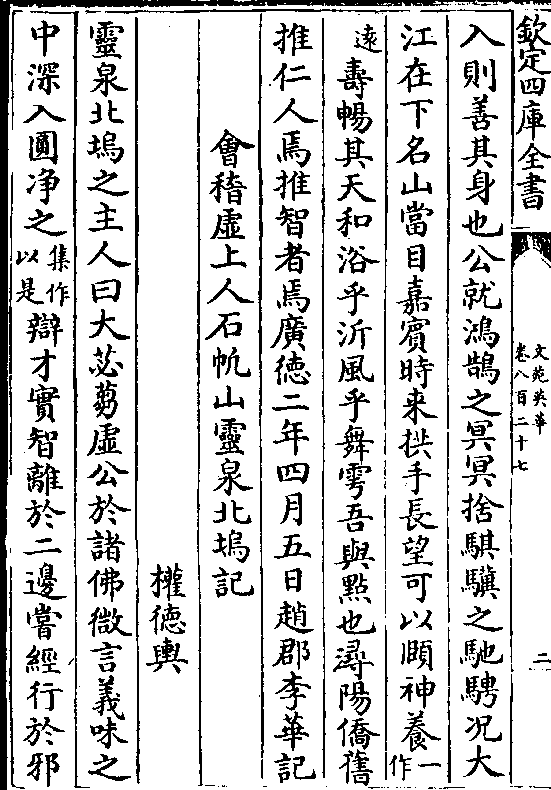 欽定四庫全書
文苑英華
卷八百二十七
二
入則善其身也公就鴻鵠之冥冥捨騏驥之馳騁况大
江在下名山當目嘉賓時来拱手長望可以頥神養一作
逺壽暢其天和浴乎沂風乎舞雩吾與㸃也潯陽僑舊
推仁人焉推智者焉廣徳二年四月五日趙郡李華記
會稽虛上人石帆山靈泉北塢記
權徳輿
靈泉北塢之主人曰大苾蒭虛公於諸佛微言義味之
中深入圓净之集作以是辯才實智離於二邊嘗經行於邪